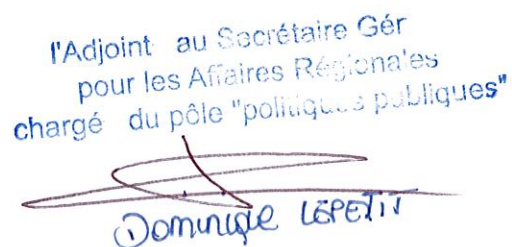 l'Adjoint au Secrétaire Gér
pour les Affaires Régionales
chargé du pôle "politiques publiques"
Dominique LEPETIT